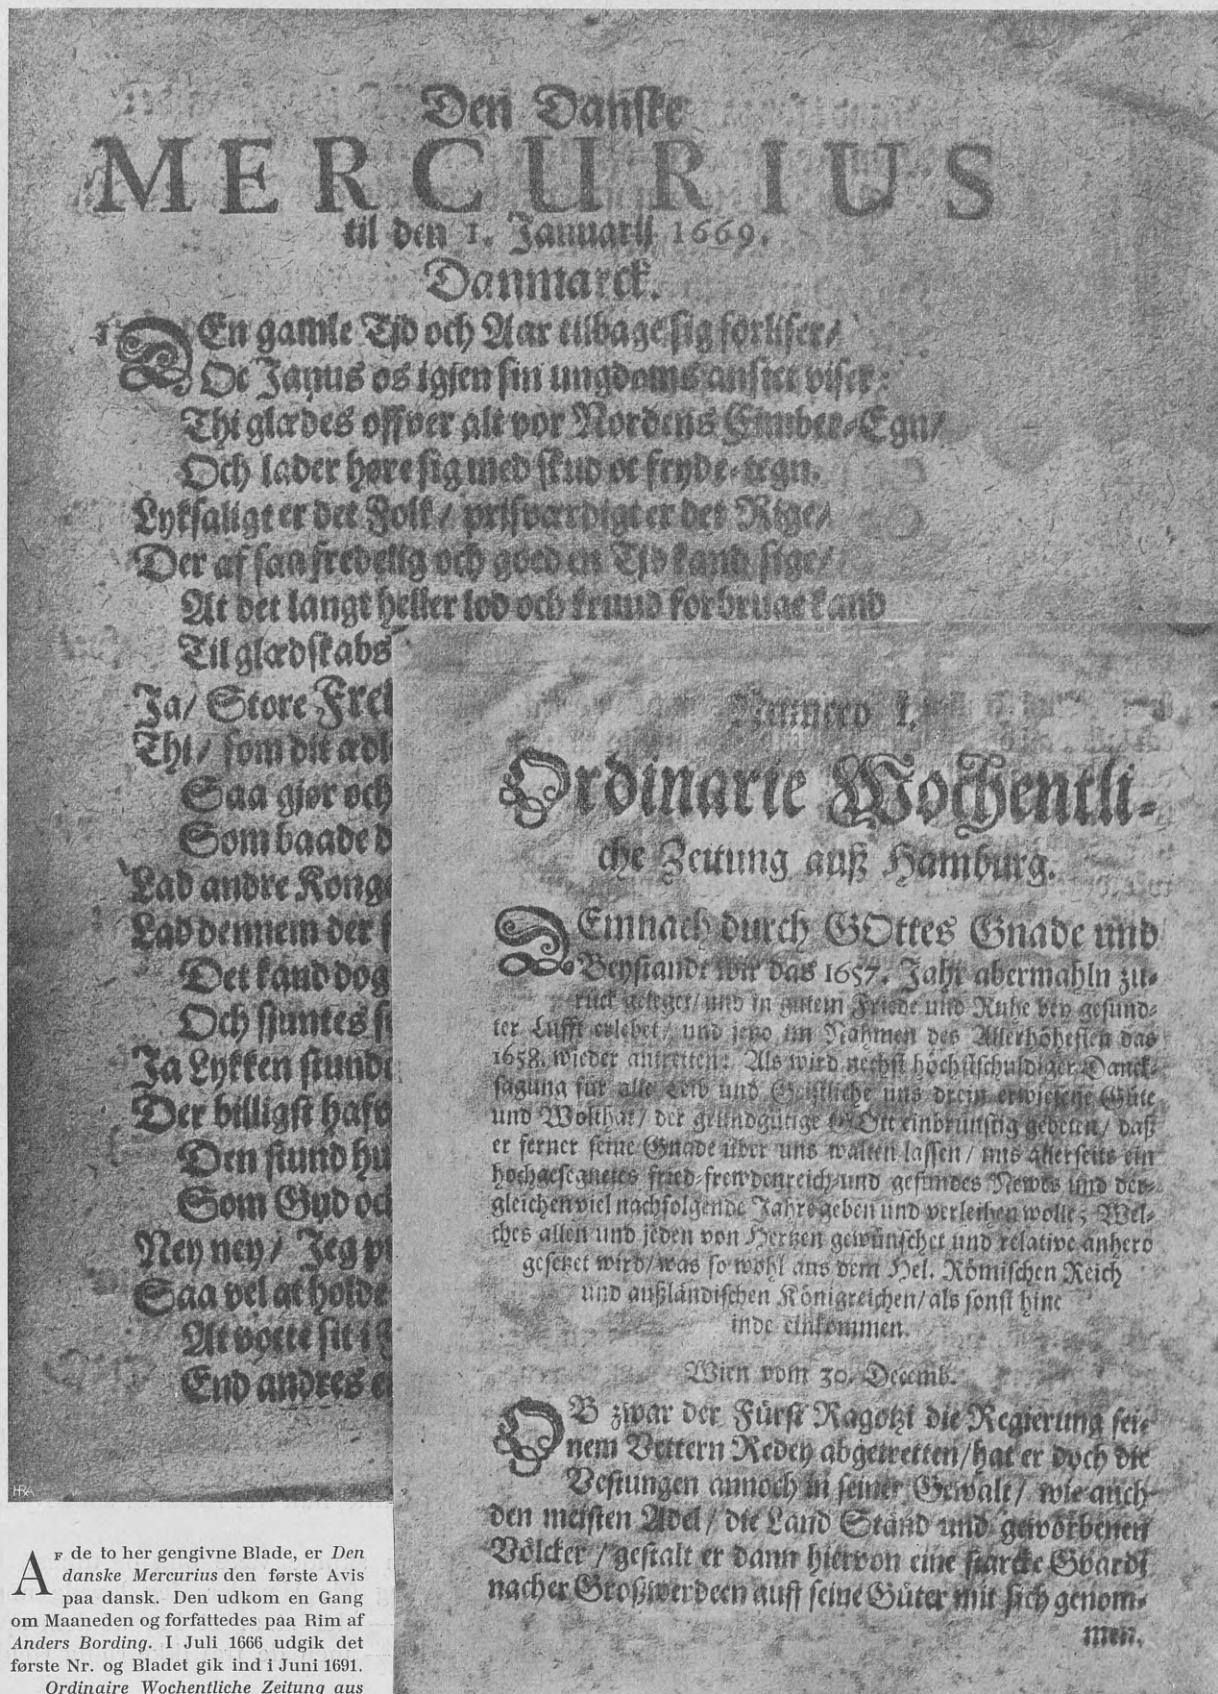 Den Danske
MERCURIUS
til den 1. Januarij 1669.
Danmarck.
DEn gamle Tjd och Aar tilbage sig forliser/
Oc Janus os igjen sin ungdoms ansict viser:
Thi glædes offver alt vor Nordens Egn/
Och lader høre sig med skud oc fryde-tegn.
Lyksaligt er det Folk/ prisværdigt er det Rige/
Der af saa fredelig och goed en Tjd kand sige/
At det langt heller lod och krund forbruge kand
Til glædskabs
Ja/ Store Fre
Thi/ som dit ædl
Saa gjør och
Som baade d
Lad andre Konge
Lad dennem der
Det kand dog
Och stuntes s
Ja Lykken stunde
Der billigst hafv
Den stund hu
Som Gud oc
Ney ney/ Jeg p
Saa vel at holde
At sit i
End andres e
Numero 1.
Ordinarie Wochentli-
che Zeitung auß Hamburg.
DEmnach durch GOttes Gnade und
Beystandt wir das 1657. Jahr abermahln zu-
rück geleget/ und in gutem Friede und Ruhe bey gesund-
ter Lufft erlebet/ und jetzo im Nahmen des Allerhöhesten das
1658. wieder antretten: Als wird nechst höchstschuldiger Danck-
sagung für alle Leib und Geistliche uns drein erwiesene Güte
und Wolthat/ der grundgütige GOtt einbrünstig gebeten/ daß
er ferner seine Gnade über uns walten lassen/ uns allerseits ein
hochgesegnetes fried-frewdenreich-und gesundes Newes und der-
gleichen viel nachfolgende Jahre geben und verleihen wolle; Wel-
ches allen und jeden von Hertzen gewünschet und relative anhero
gesetzet wird/ was so wohl aus dem Hel. Römischen Reich
und außländischen Königreichen/ als sonst hinc
inde einkommen.
Wien vom 30. Decemb.
OB zwar der Fürst Ragotzi die Regierung sei-
nem Vettern Redey abgetretten/ hat er doch die
Vestungen annoch in seiner Gewalt/ wie auch
den meisten Adel/ die Land Ständ und geworbenen
Völcker/ gestalt er dann hiervon eine starcke Guardi
nacher Großwerdeen auff seine Güter mit sich genom-
men.
HRA
AF de to her gengivne Blade, er Den
danske Mercurius den første Avis
paa dansk. Den udkom en Gang
om Maaneden og forfattedes paa Rim af
Anders Bording. I Juli 1666 udgik det
første Nr. og Bladet gik ind i Juni 1691.
Ordinaire Wochentliche Zeitung aus